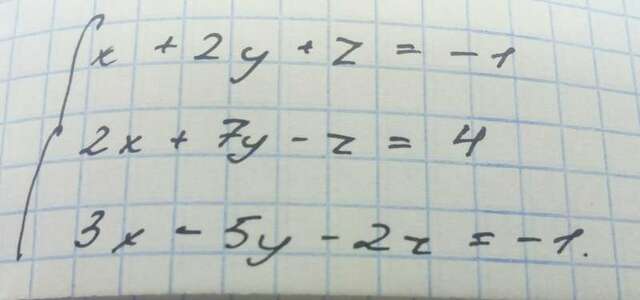 x + 2y + z = -1
2x + 7y - z = 4
3x - 5y - 2z = -1.